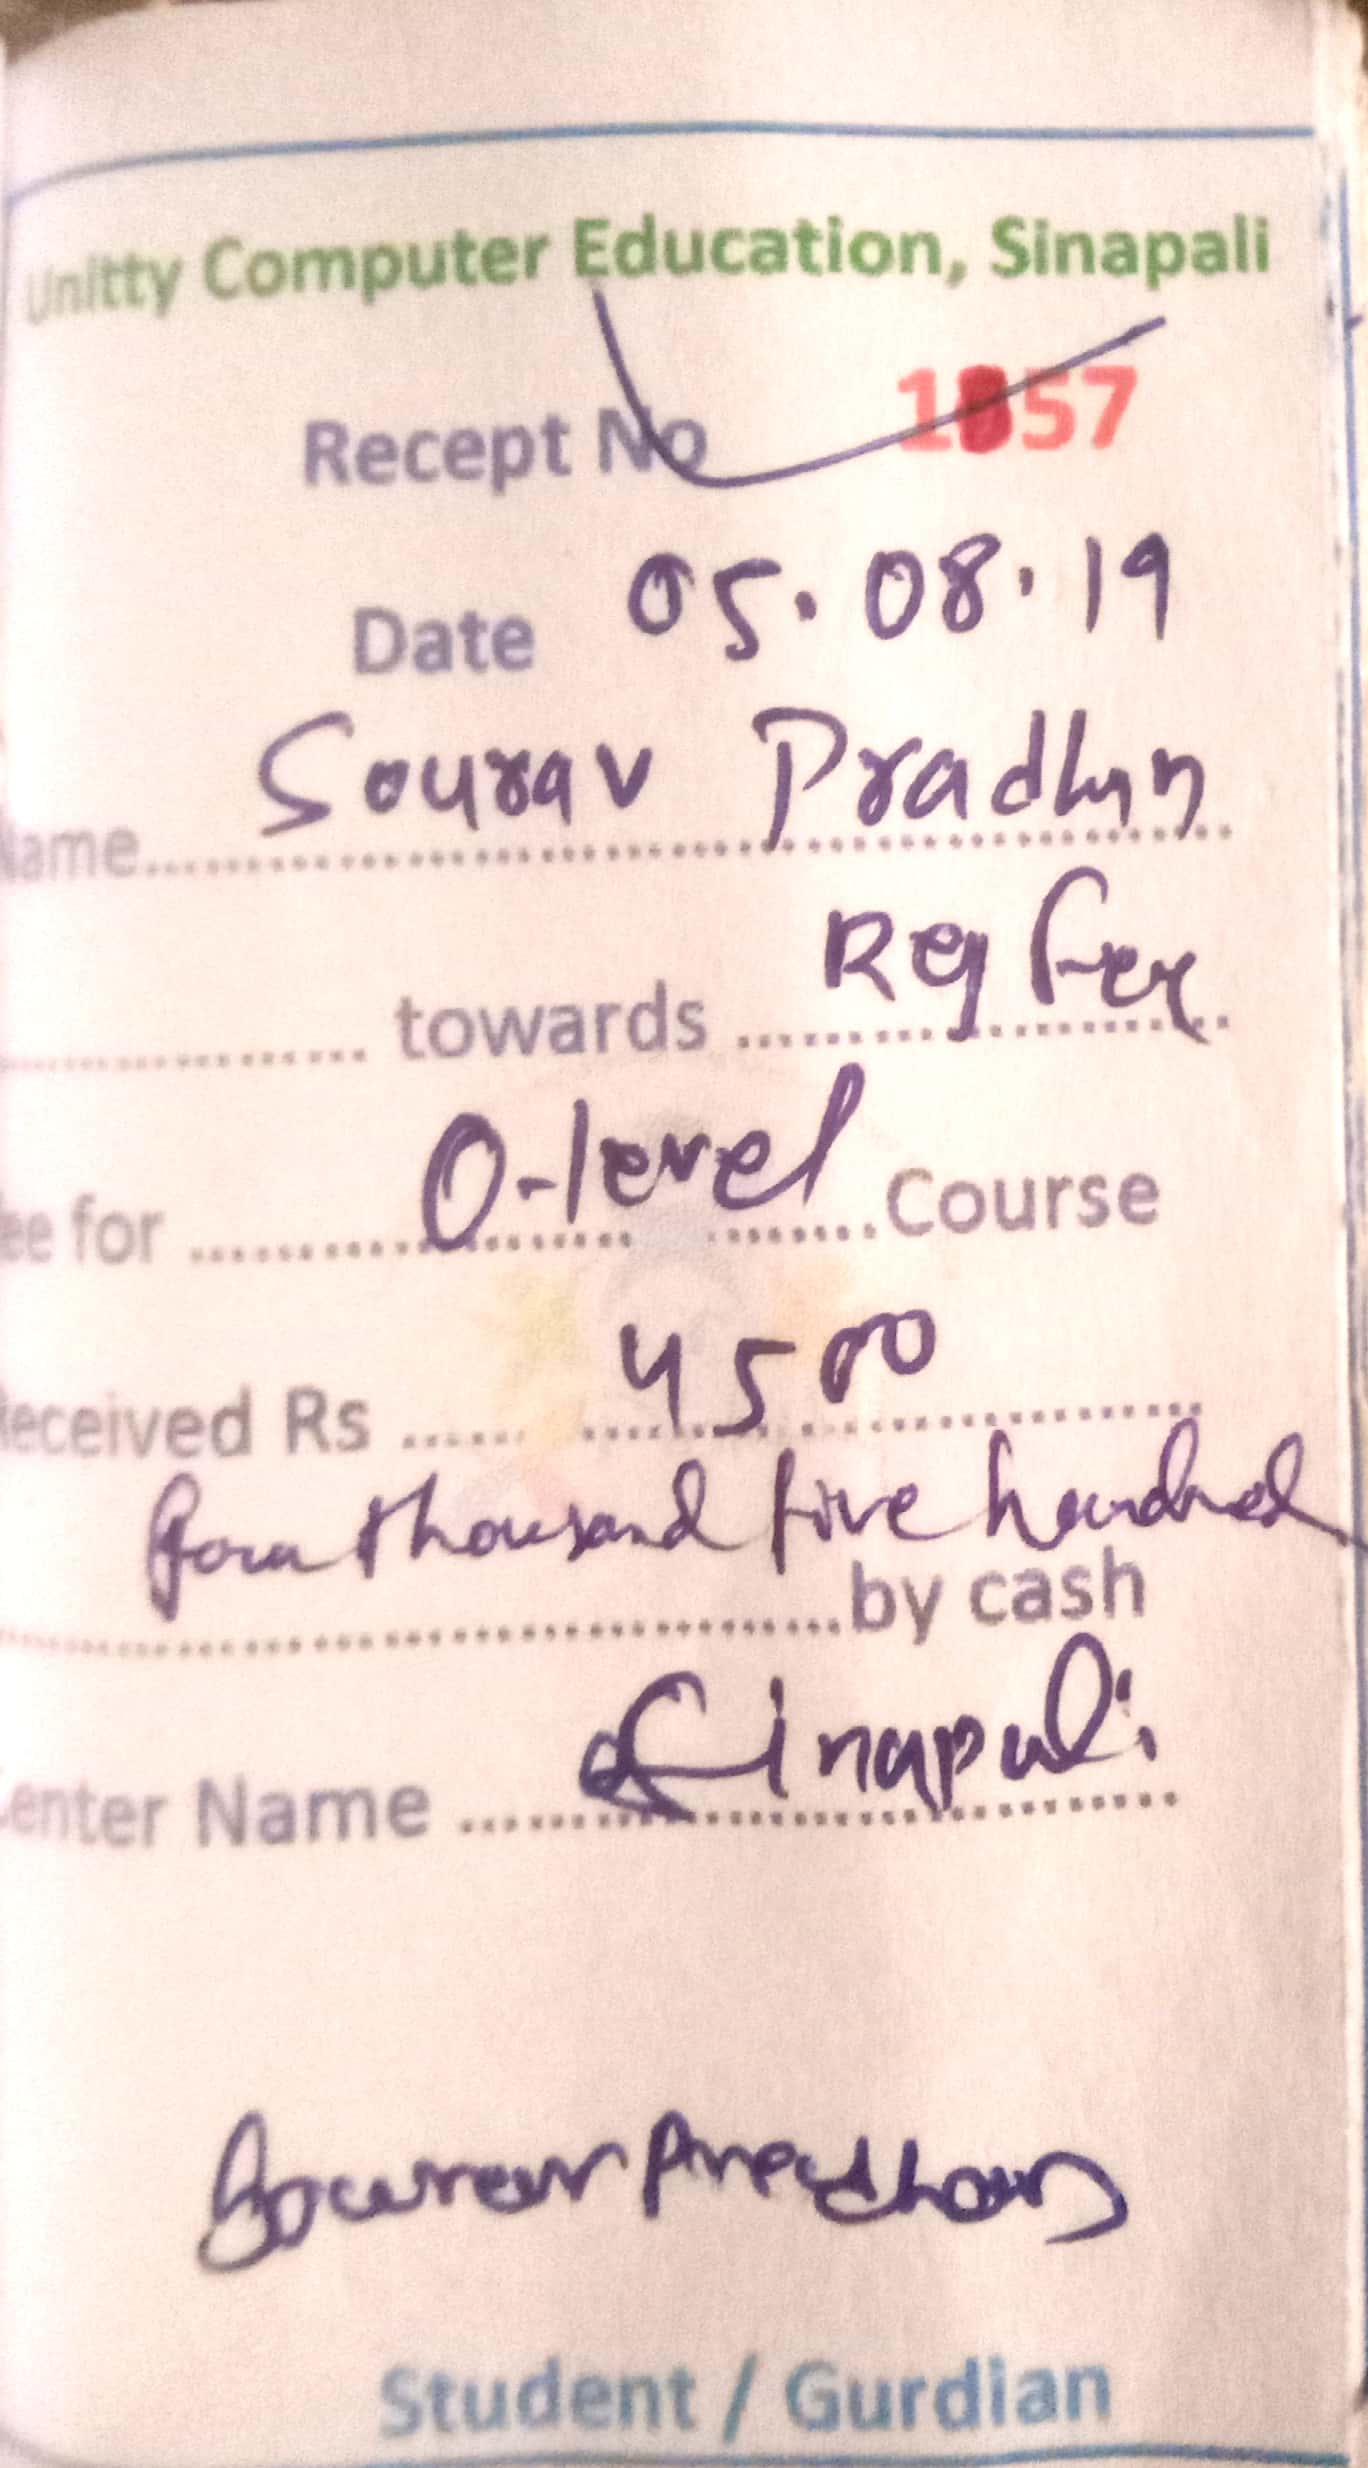 Unitty Computer Education, Sinapali
Recept No 1857
Date 05.08.19
Name Sourav Pradhan
towards Reg Fee
ee for O-level Course
Received Rs 4500
four thousand five hundred
by cash
Center Name Sinapali
Sourav Pradhan
Student / Gurdian